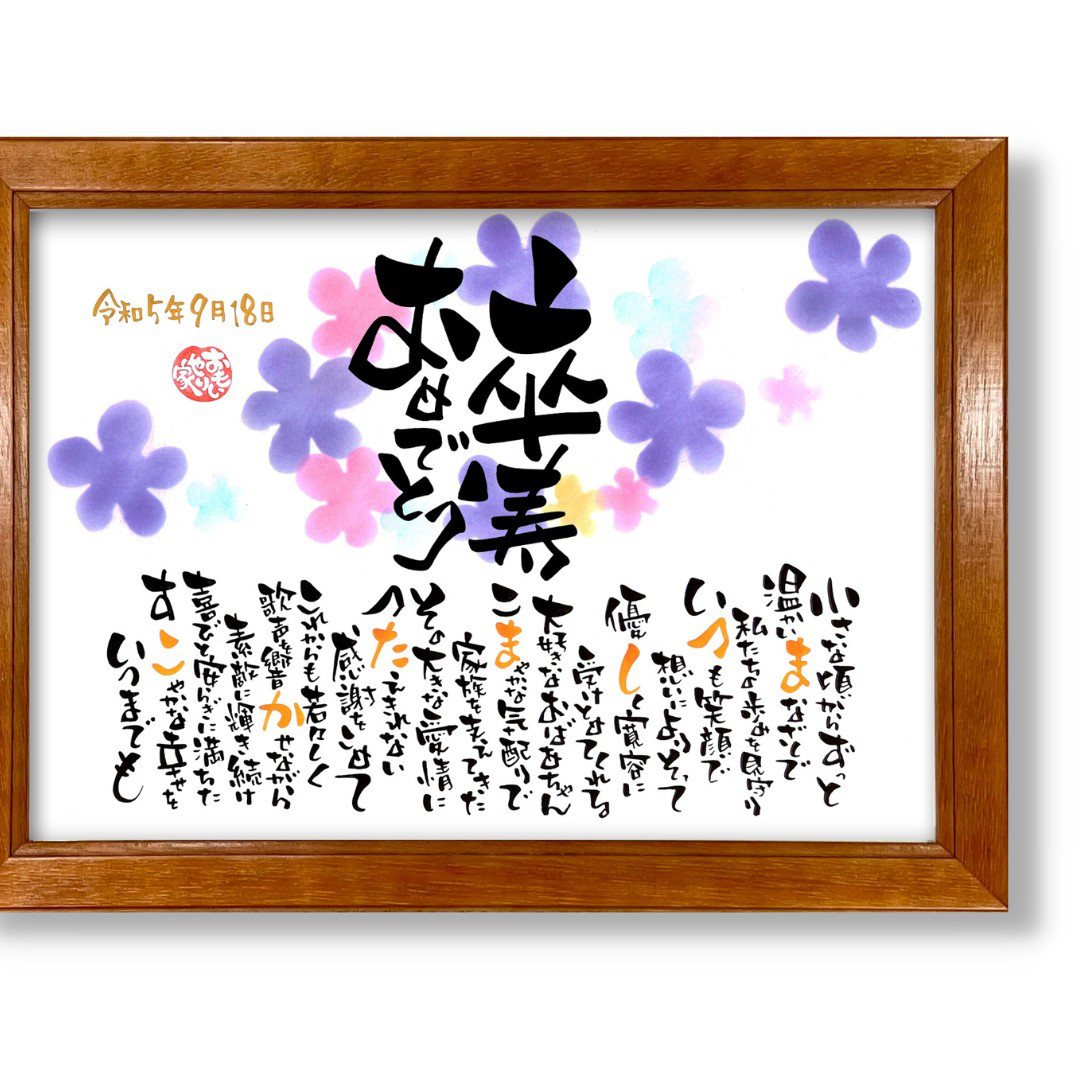 卒寿
おめでとう
令和5年9月18日
おもいやり家
小さな頃からずっと
温かいまなざしで
私たちの歩みを見守り
いつも笑顔で
想いによりそって
優しく寛容に
受けとめてくれる
大好きなおばあちゃん
こまやかな気配りで
家族を支えてきた
その大きな愛情に
つたえきれない
感謝をこめて
これからも若々しく
歌声を響かせながら
素敵に輝き続け
喜びと安らぎに満ちた
すこやかな幸せを
いつまでも